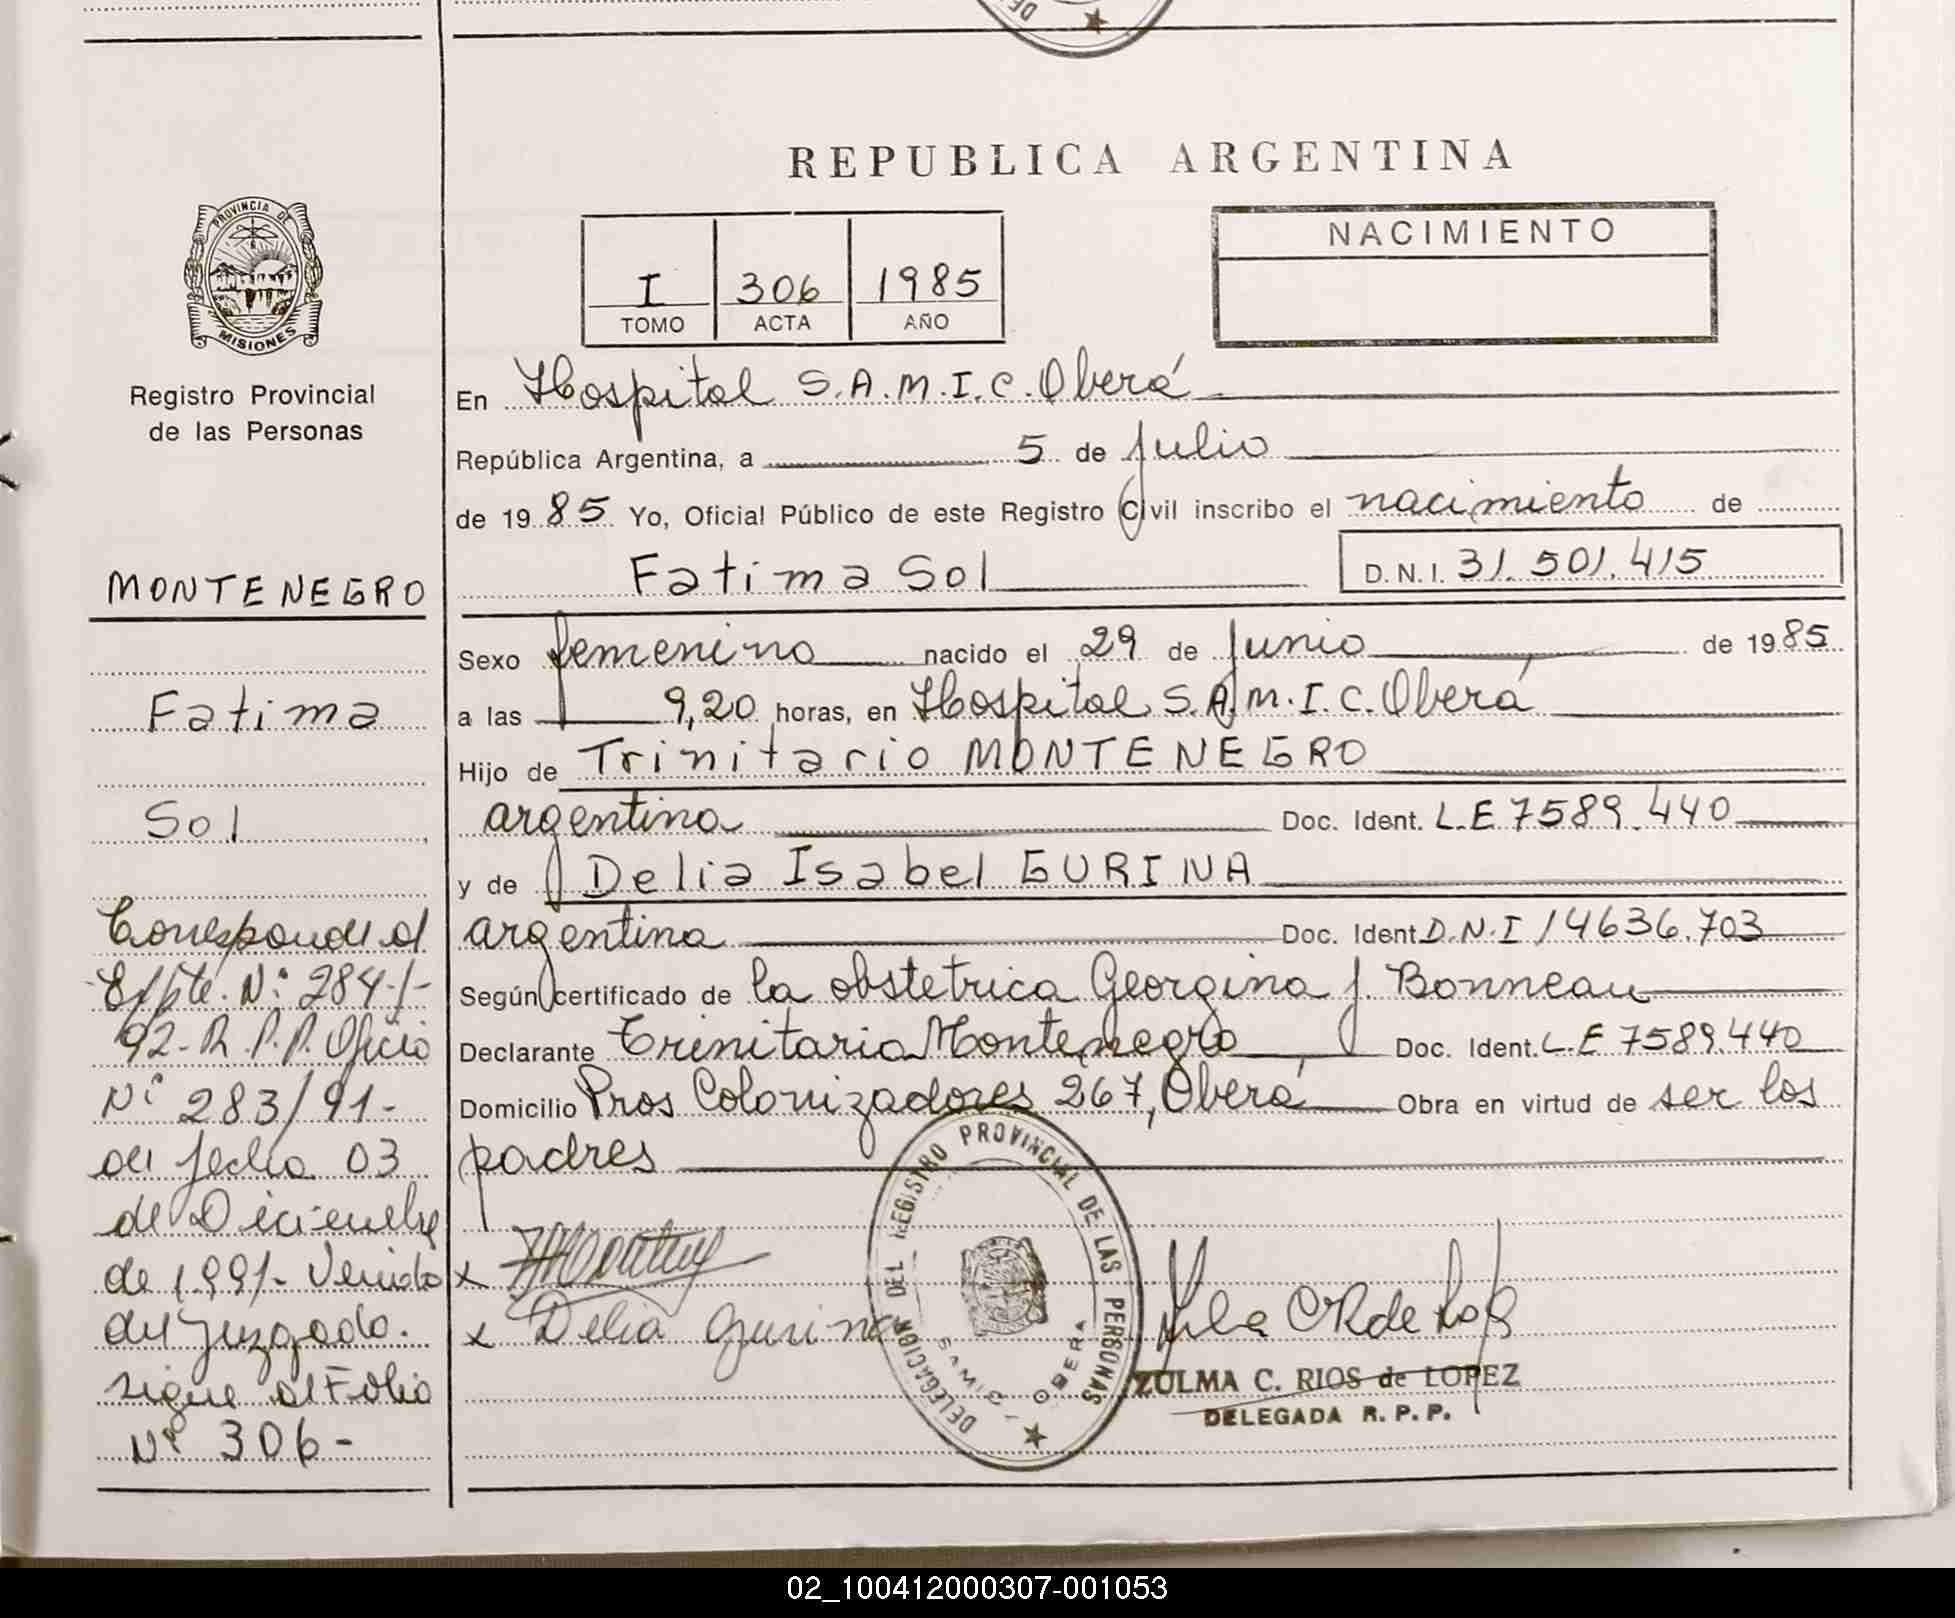 REPUBLICA ARGENTINA
PROVINCIA DE
MISIONES
Registro Provincial
de las Personas
I 306 1985
TOMO ACTA AÑO
NACIMIENTO
En Hospital S.A.M.I.C. Oberá
República Argentina, a 5 de Julio
de 1985 Yo, Oficial Público de este Registro Civil inscribo el nacimiento de
Fatima Sol D.N.I. 31.501.415
Sexo femenino nacido el 29 de Junio de 1985
a las 9,20 horas, en Hospital S.A.M.I.C. Oberá
Hijo de Trinitario MONTENEGRO
argentino Doc. Ident. L.E 7589.440
y de Delia Isabel GURINA
argentina Doc. Ident D.N.I 14636.703
Según certificado de la obstetrica Georgina J. Bonneau
Declarante Trinitario Montenegro Doc. Ident. L.E 7589.440
Domicilio Pros Colonizadores 267, Oberá Obra en virtud de ser los
padres
x
x Delia Gurina
ZULMA C. RIOS de LOPEZ
DELEGADA R.P.P.
DELEGACION DEL REGISTRO PROVINCIAL DE LAS PERSONAS
OBERA
MONTENEGRO
Fatima
Sol
Corresponde al
Expte. Nº 284-/-
92-R.P.P. Oficio
Nº 283/91-
de fecha 03
de Diciembre
de 1.991- Venido
del Juzgado.
sigue al Folio
Nº 306-
02_100412000307-001053